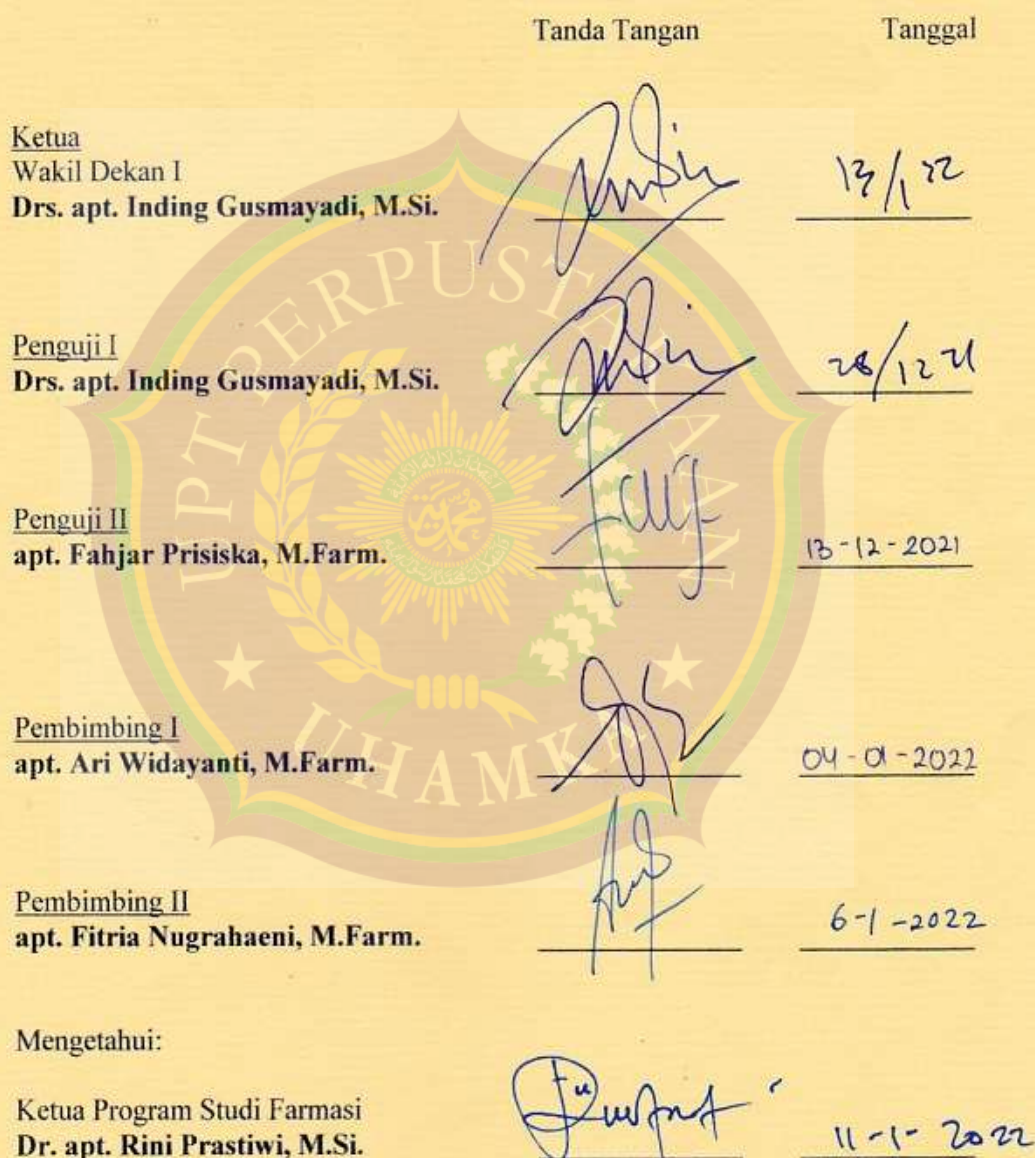 Tanda Tangan Tanggal
Ketua
Wakil Dekan I
Drs. apt. Inding Gusmayadi, M.Si. 13/1 22
Penguji I
Drs. apt. Inding Gusmayadi, M.Si. 28/12 21
Penguji II
apt. Fahjar Prisiska, M.Farm. 13-12-2021
Pembimbing I
apt. Ari Widayanti, M.Farm. 04-01-2022
Pembimbing II
apt. Fitria Nugrahaeni, M.Farm. 6-1-2022
Mengetahui:
Ketua Program Studi Farmasi
Dr. apt. Rini Prastiwi, M.Si. 11-1-2022
UPT PERPUSTAKAAN
UHAMKA